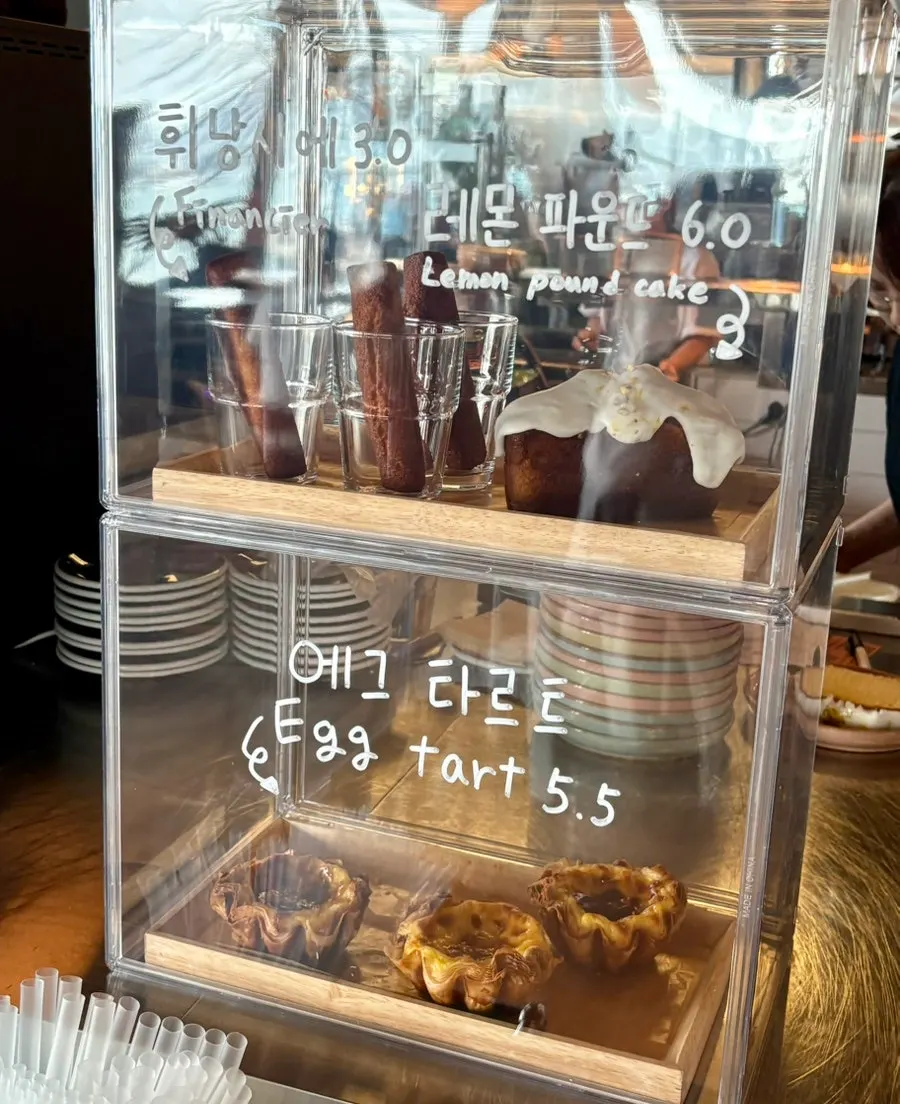 휘낭시에 3.0
Financier
레몬 파운드 6.0
Lemon pound cake
에그 타르트
Egg tart 5.5
MADE IN CHINA